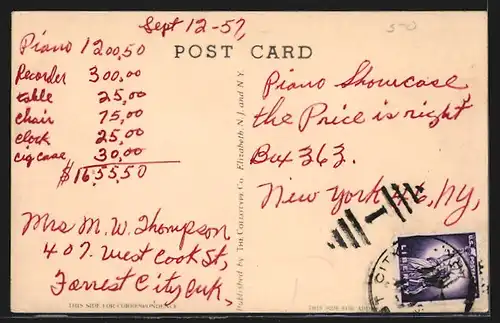 Sept 12-57,
POST CARD
Piano 1200,50
Recorder 300,00
table 25,00
chair 75,00
clock 25,00
cig case 30,00
$1655,50
Mrs M. W. Thompson,
407, West Cook St,
Forrest City, Ark,
THIS SIDE FOR CORRESPONDENCE
Published by The Collotype Co., Elizabeth, N.J. and N.Y.
50
Piano Showcase
the Price is right
Box 363.
New York 46, N,Y,
LIBERTY
THIS SIDE FOR